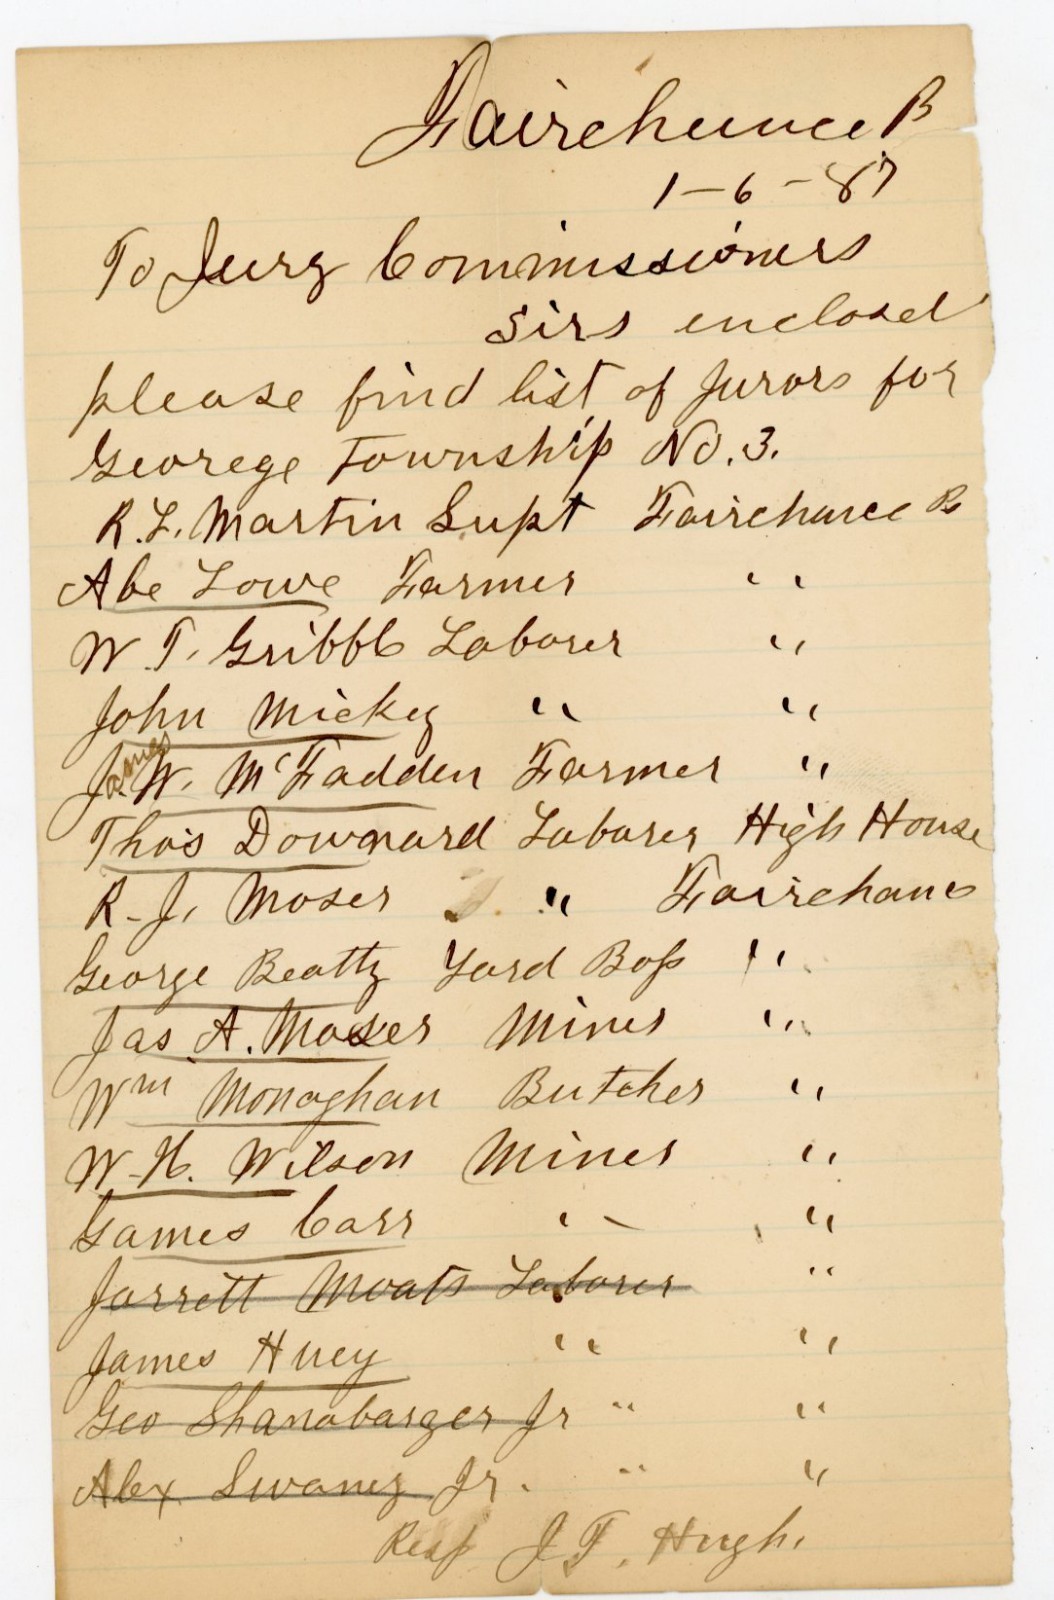 Fairchance P
1-6-87
To Jury Commissioners
Sirs enclosed
please find list of Jurors for
Georege Township No. 3.
R. L. Martin Supt Fairchance Pa
Abe Lowe Farmer " "
W. T. Gribbl Laborer "
John Mickey " "
James W. McFadden Farmer "
Thos Downard Laborer High House
R. J. Moser " Fairchance
George Beatty Yard Boss "
Jas. A. Moser Miner "
Wm Monaghan Butcher "
W. H. Wilson Miner "
James Carr " "
Jarrett Moats Laborer "
James Huey " "
Geo Shanabarger Jr " "
Alex Swaney Jr. " "
Resp J. T. Hugh.